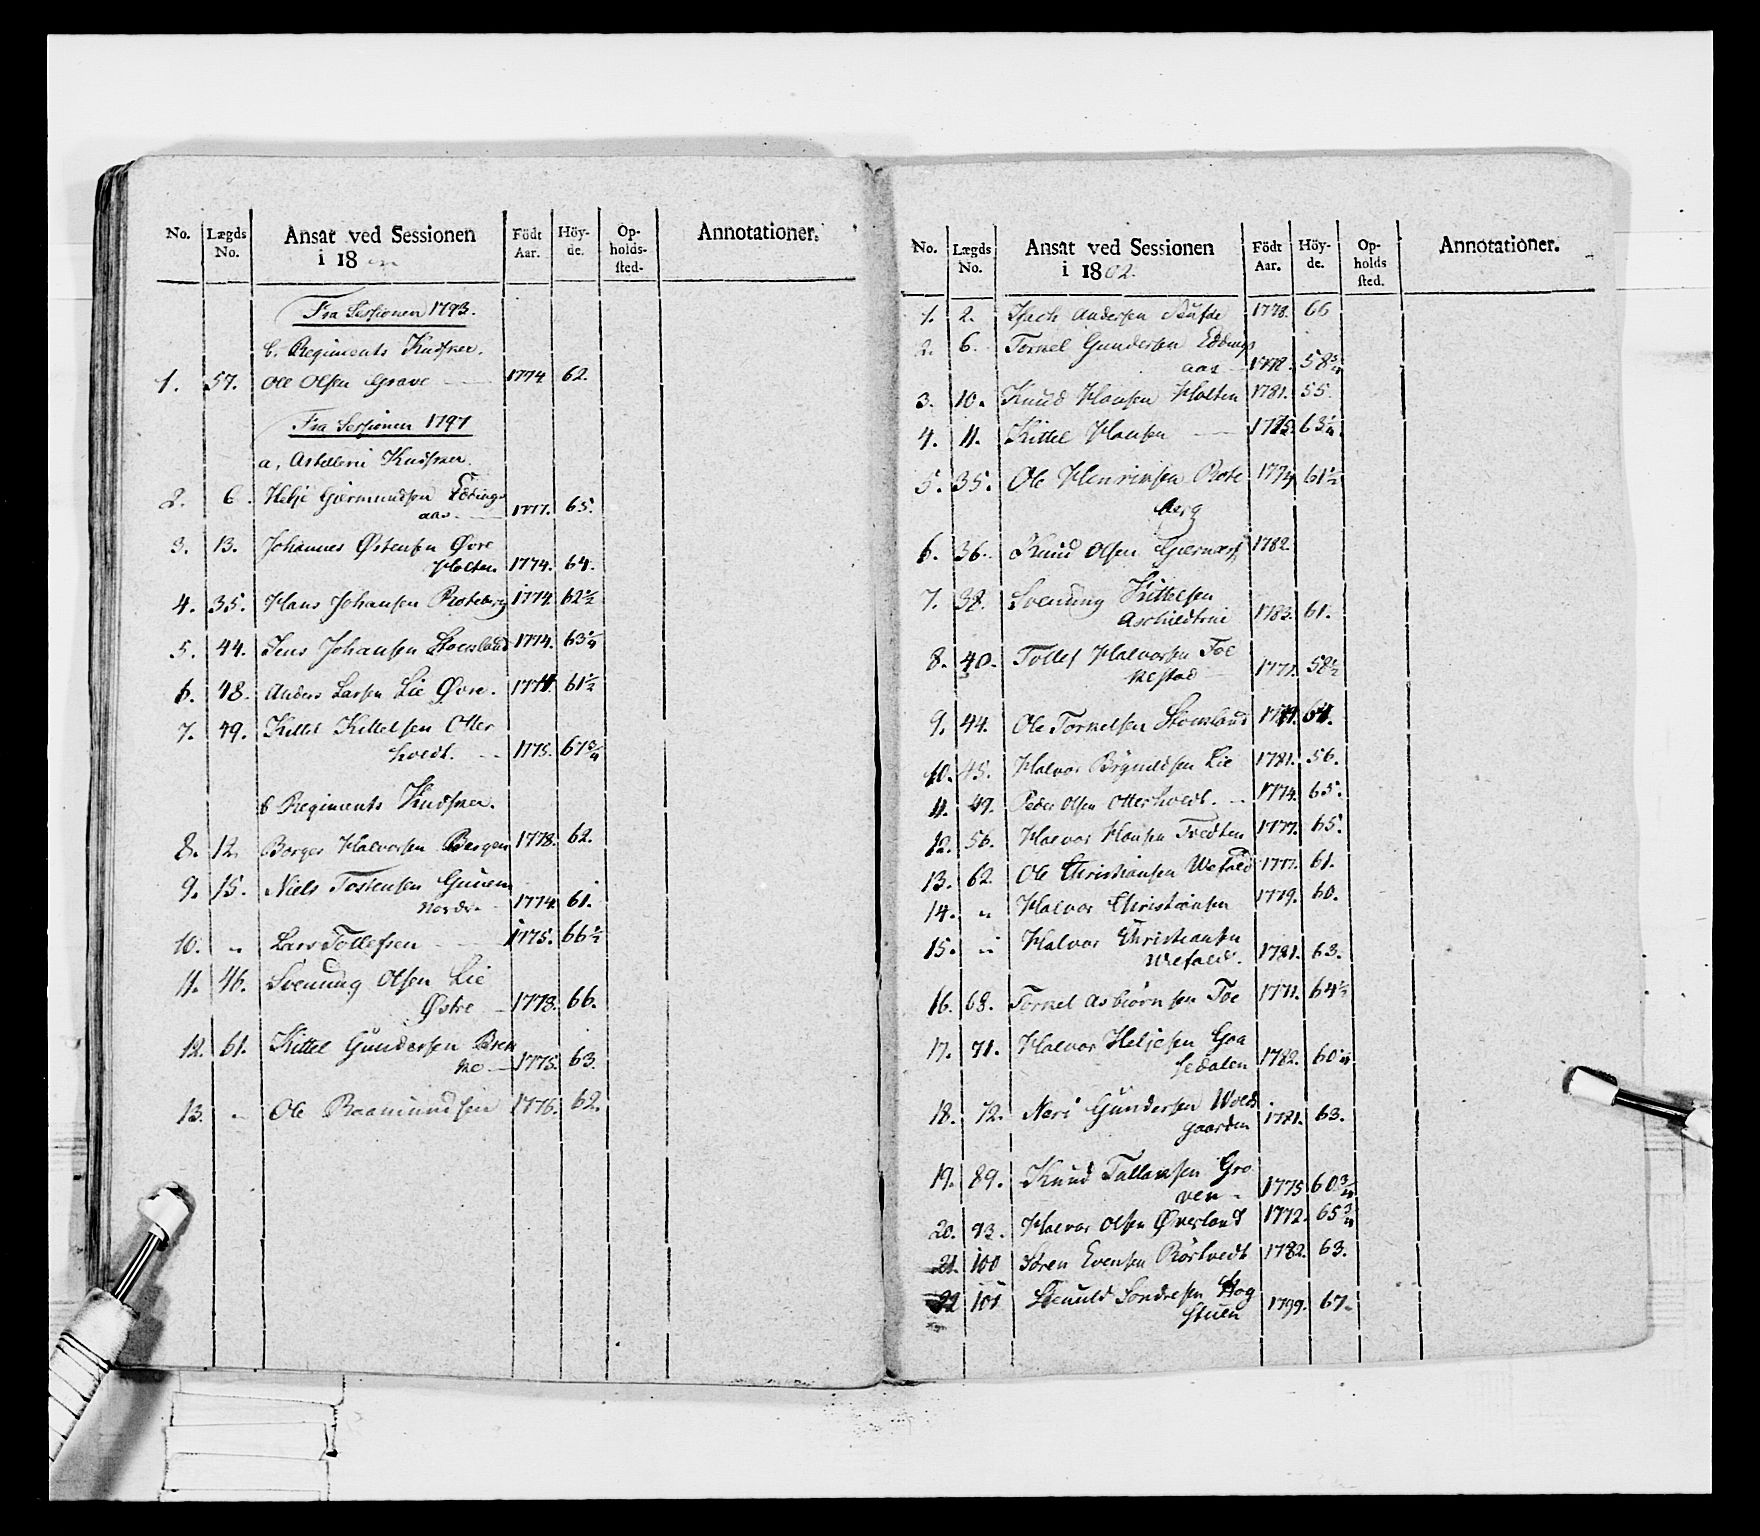 No. Lægds No. Ansat ved Sessionen i 18 Födt Aar. Höy-de. Op-holds-sted. Annotationer.
Fra Sessionen 1793.
b. Regiments Kudsker.
1. 57. Ole Olsen Grave 1774 62.
Fra Sessionen 1797
a, Artilleri Kudsker.
2. 6. Helje Giermundsen Eddings
aas. 1777. 65.
3. 13. Johannes Østensen Øvre
Holten 1774. 64.
4. 35. Hans Johansen Roteberg 1774 62½
5. 44. Jens Johansen Stoensland 1774. 63¼
6. 48. Anders Larsen Lie Øvre. 1774 61½
7. 49. Kittel Kittelsen Otter
hvedt. 1775. 67¾
b Regiments Kudsker.
8. 12. Borger Halvorsen Bergan 1778. 62.
9. 15. Niels Tostensen Gunem
Nordre 1774. 61.
10. " Lars Tollefsen 1775. 66½
11. 46. Svenung Olsen Lie
Østre 1778. 66.
12. 61. Kittel Gundersen Brek
ke 1775. 63.
13. " Ole Raamundsen 1776. 62.
No. Lægds No. Ansat ved Sessionen i 1802. Födt Aar. Höy-de. Op-holds sted. Annotationer.
1. 2. Isach Andersen 1778. 66
2. 6. Torkel Gundersen Eddings
aas 1778. 58¾
3. 10. Knud Hansen Holten 1781. 55.
4. 11. Kittel Hansen 63¼
5. 35. Ole Henriksen Rote
berg 1774 61½
6. 36. Knud Olsen 1782.
7. 38. Svenung Kittelsen
1783. 61.
8. 40. Tollef Halvorsen Toe
Nestad 1777. 58½
9. 44. Ole Torkelsen Stoensland 64.
10. 45. Halvor Brynildsen Lie 1781. 56.
11. 49. Peder Olsen Otterhvedt. 1774. 65.
12. 56. Halvor Hansen Tvedten 1777. 65.
13. 62. Ole Christiansen Wefald 1777. 61.
14. " Halvor Christiansen 1779. 60.
15. " Halvor Christiansen
Wefald. 1781. 63.
16. 68. Torkel Asbiørnsen Toe 1771. 64½
17. 71. Halvor Heljesen Gaa
sedalen 1782. 60¼
18. 72. Neri Gundersen Wold
gaarden 1781. 63.
19. 89. Knud Tallaksen Gro
ven 1775 60¾
20. 93. Halvor Olsen Øverland 1772. 65¾
21. 100 Søren Evensen Rörhvedt 1782. 63.
22 101 Steenuld Sondresen Hog
stuen 1799. 67.